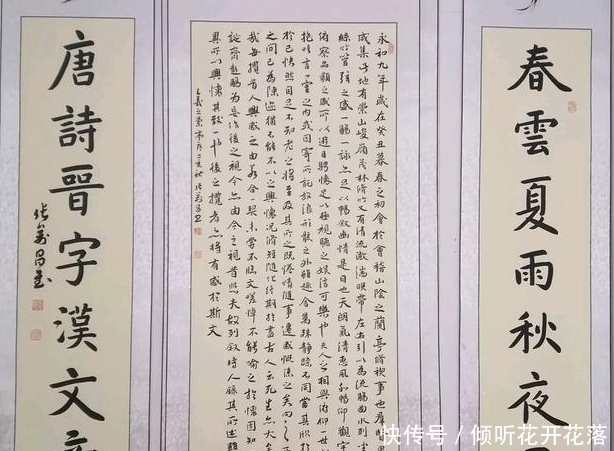 春雲夏雨秋夜
永和九年歲在癸丑暮春之初會於會稽山陰之蘭亭脩禊事也羣賢
咸集此地有崇山峻領茂林脩竹又有清流激湍暎帶左右引以為流觴曲水列坐
絲竹管弦之盛一觴一詠亦足以暢叙幽情是日也天朗氣清惠風和暢仰觀宇
俯察品類之盛所以遊目騁懷足以極視聽之娛信可樂也夫人之相與俯仰一世
抱悟言一室之內或因寄所託放浪形骸之外雖趣舍萬殊靜躁不同當其欣於
於己快然自足不知老之將至及其所之既惓情隨事遷感慨係之矣向之
之間已為陳迹猶不能不以之興懷況脩短隨化終期於盡古人云死生亦大矣
我每攬昔人興感之由若合一契未嘗不臨文嗟悼不能喻之於懷固知
誕齊彭殤為妄作後之視今亦由今之視昔悲夫故列叙時人錄其所述雖
異所以興懷其致一也後之攬者亦將有感於斯文
王羲之蘭亭序丁亥秋張萬昌書
唐詩晉字漢文章
張萬昌書
快传号 / 倾听花开花落